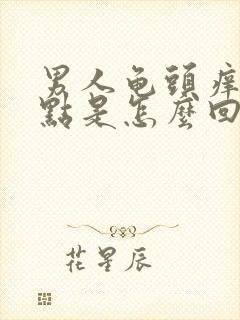 男人龟頭痒
點是怎麼回
花星辰